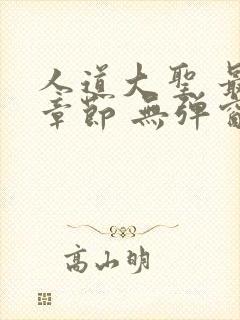 人道大聖 最
章節 無彈窗
高山明